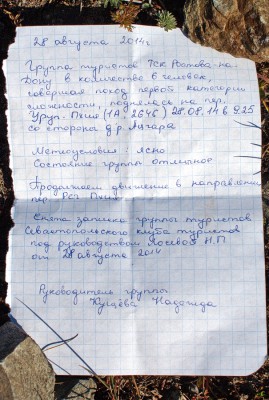 28 августа 2014г
Группа туристов ТСК Ростова-на-
Дону в количестве 6 человек,
совершая поход первой категории
сложности, поднялась на пер.
Уруп. Пхия (1А - 2646) 28.08.14 в 9.25
со стороны д.р.
Метеоусловия: Ясно
Состояние группы отличное
Продолжаем движение в направлении
пер. Пхия
Снята записка группы туристов
Севастопольского клуба туристов
под руководством Лосевой Н.П
от 28 августа 2014
Руководитель группы
Надежда